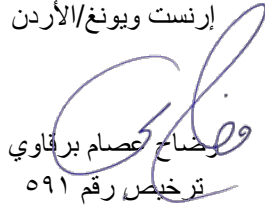 إرنست ويونغ/الأردن
وضاح عصام برقاوي
ترخيص رقم ٥٩١